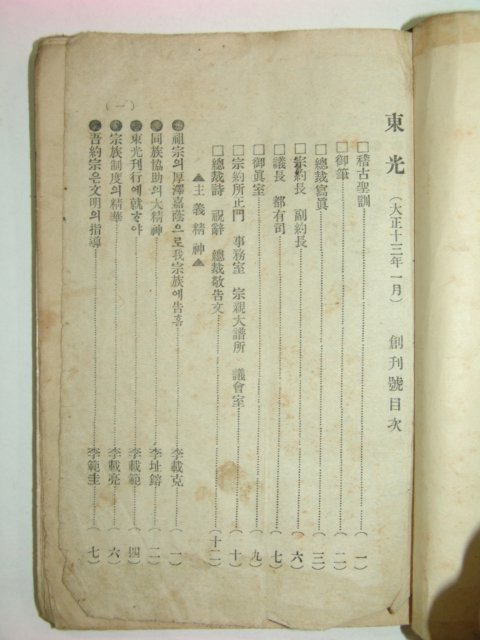 東光 (大正十三年一月) 創刊號目次
□稽古聖訓……(一)
□御筆……(二)
□總裁寫眞……(三)
□宗約長 副約長……(六)
□議長 都有司……(七)
□御眞室……(九)
□宗約所正門 事務室 宗親大譜所 議會室……(十)
□總裁詩 祝辭 總裁敬告文……(十二)
▲主義精神▲
●祖宗의厚澤嘉蔭으로我宗族에告흠……李載克……(一)
●同族協助의大精神……李址鎔……(二)
●東光刊行에就하야……李載範……(四)
●宗族制度의精華……李載亮……(六)
●吾約宗은文明의指導……李範圭……(七)
(一)